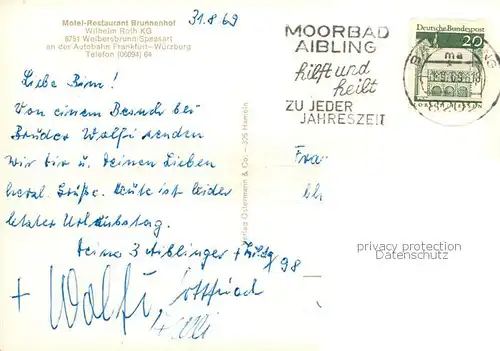 Motel-Restaurant Brunnenhof
Wilhelm Roth KG
8751 Weibersbrunn-Spessart
an der Autobahn Frankfurt-Würzburg
Telefon (06094) 64
31.8.69
MOORBAD
AIBLING
hilft und
heilt
ZU JEDER
JAHRESZEIT
Deutsche Bundespost
20
Von einem Besuch bei
Bruder Wolfi senden
wir dir u. deinen Lieben
herzl. Grüße. Heute ist leider
letzter Urlaubstag.
Deine 3 Aiblinger +
+ Wolfi
98
Verlag Ostermann & Co. - 325 Hameln
privacy protection
Datenschutz